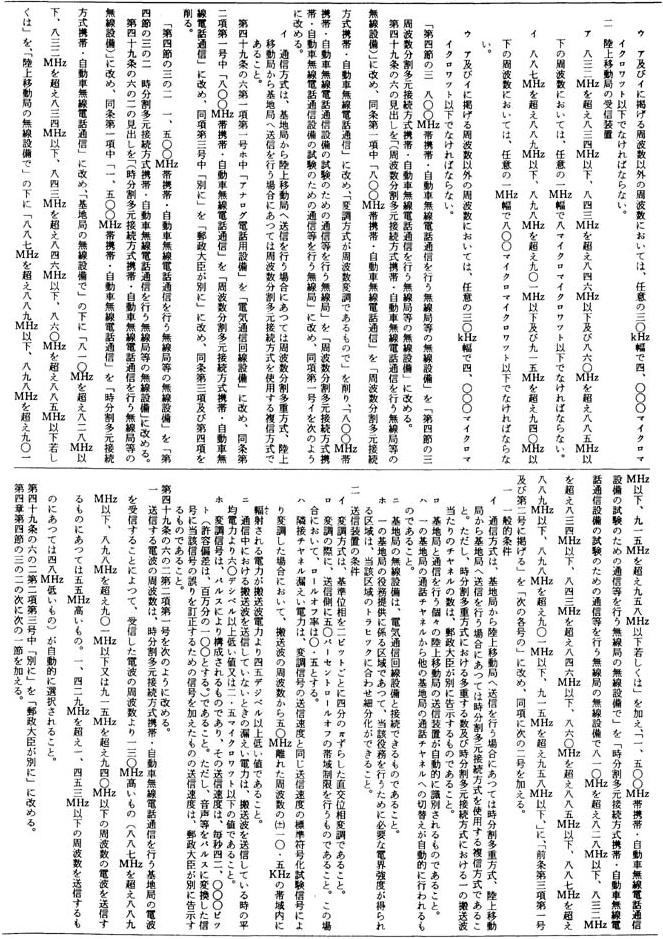 ウ　ア及びイに掲げる周波数以外の周波数においては、任意の三〇kHz幅で四、〇〇〇マイクロマ
イクロワット以下でなければならない。
二　陸上移動局の受信装置
ア　八三二MHzを超え八三四MHz以下、八四三MHzを超え八四六MHz以下及び八六〇MHzを超え八八五MHz以
下の周波数においては、任意の一MHz幅で八マイクロマイクロワット以下でなければならない。
イ　八八七MHzを超え八八九MHz以下、八九八MHzを超え九〇一MHz以下及び九一五MHzを超え九四〇MHz以
下の周波数においては、任意の一MHz幅で八〇〇マイクロマイクロワット以下でなければならな
い。
ウ　ア及びイに掲げる周波数以外の周波数においては、任意の三〇kHz幅で四、〇〇〇マイクロマ
イクロワット以下でなければならない。
「第四節の三　八〇〇MHz帯携帯・自動車無線電話通信を行う無線局等の無線設備」を「第四節の三
周波数分割多元接続方式携帯・自動車無線電話通信を行う無線局等の無線設備」に改める。
第四十九条の六の見出しを「（周波数分割多元接続方式携帯・自動車無線電話通信を行う無線局等の
無線設備）」に改め、同条第一項中「八〇〇MHz帯携帯・自動車無線電話通信」を「周波数分割多元接続
方式携帯・自動車無線電話通信」に改め、「変調方式が周波数変調であるもので」を削り、「八〇〇MHz帯
携帯・自動車無線電話通信設備の試験のための通信等を行う無線局」を「周波数分割多元接続方式携
帯・自動車無線電話通信設備の試験のための通信等を行う無線局」に改め、同項第一号イを次のよう
に改める。
イ　通信方式は、基地局から陸上移動局へ送信を行う場合にあつては周波数分割多重方式、陸上
移動局から基地局へ送信を行う場合にあつては周波数分割多元接続方式を使用する複信方式で
あること。
第四十九条の六第一項第一号ホ中「アナログ電話用設備」を「電気通信回線設備」に改め、同条第
二項第一号中「八〇〇MHz帯携帯・自動車無線電話通信」を「周波数分割多元接続方式携帯・自動車無
線電話通信」に改め、同項第三号中「別に」を「郵政大臣が別に」に改め、同条第三項及び第四項を
削る。
「第四節の三の二　一、五〇〇MHz帯携帯・自動車無線電話通信を行う無線局等の無線設備」を「第
四節の三の二　時分割多元接続方式携帯・自動車無線電話通信を行う無線局等の無線設備」に改める。
第四十九条の六の二の見出しを「（時分割多元接続方式携帯・自動車無線電話通信を行う無線局等の
無線設備）」に改め、同条第一項中「一、五〇〇MHz帯携帯・自動車無線電話通信」を「時分割多元接続
方式携帯・自動車無線電話通信」に改め、「基地局の無線設備で」の下に「八一〇MHzを超え八二八MHz以
下、八三二MHzを超え八三四MHz以下、八四三MHzを超え八四六MHz以下、八六〇MHzを超え八八五MHz以下若し
くは」を、「陸上移動局の無線設備で」の下に「八八七MHzを超え八八九MHz以下、八九八MHzを超え九〇一
MHz以下、九一五MHzを超え九五八MHz以下若しくは」を加え、「一、五〇〇MHz帯携帯・自動車無線電話通信
設備の試験のための通信等を行う無線局の無線設備で」を「時分割多元接続方式携帯・自動車無線電
話通信設備の試験のための通信等を行う無線局の無線設備で八一〇MHzを超え八二八MHz以下、八三二MHz
を超え八三四MHz以下、八四三MHzを超え八四六MHz以下、八六〇MHzを超え八八五MHz以下、八八七MHzを超え
八八九MHz以下、八九八MHzを超え九〇一MHz以下、九一五MHzを超え九五八MHz以下、」に、「前条第三項第一号
及び第二号に掲げる」を「次の各号の」に改め、同項に次の二号を加える。
一　一般的条件
イ　通信方式は、基地局から陸上移動局へ送信を行う場合にあつては時分割多重方式、陸上移動
局から基地局へ送信を行う場合にあつては時分割多元接続方式を使用する複信方式であるこ
と。ただし、時分割多重方式における多重する数及び時分割多元接続方式における一の搬送波
当たりのチャネルの数は、郵政大臣が別に告示するものであること。
ロ　基地局と通信を行う個々の陸上移動局の送信装置が自動的に識別されるものであること。
ハ　一の基地局の通話チャネルから他の基地局の通話チャネルへの切替えが自動的に行われるも
のであること。
ニ　基地局の無線設備は、電気通信回線設備と接続できるものであること。
ホ　一の基地局の役務提供に係る区域であつて、当該役務を行うために必要な電界強度が得られ
る区域は、当該区域のトラヒックに合わせ細分化ができること。
二　送信装置の条件
イ　変調方式は、基準位相を二ビットごとに四分のπずらした直交位相変調であること。
ロ　変調の際に、送信側に五〇パーセントロールオフの帯域制限を行うものであること。この場
合において、ロールオフ率は〇・五とする。
ハ　隣接チャネル漏えい電力は、変調信号の送信速度と同じ送信速度の標準符号化試験信号によ
り変調した場合において、搬送波の周波数から五〇kHz離れた周波数の（±）一〇・五KHzの帯域内に
輻射される電力が搬送波電力より四五デシベル以上低い値であること。
ニ　通信中における搬送波を送信していないときの漏えい電力は、搬送波を送信している時の平
均電力より六〇デシベル以上低い値又は二・五マイクロワット以下の値であること。
ホ　変調信号は、パルスにより構成されるものであり、その送信速度は、毎秒四二、〇〇〇ビッ
ト（許容偏差は、百万分の一〇〇とする。）であること。ただし、音声等をパルスに変換した信
号に当該信号の誤りを訂正するための信号を加えたものの送信速度は、郵政大臣が別に告示す
るものであること。
第四十九条の六の二第二項第一号を次のように改める。
一　送信する電波の周波数は、時分割多元接続方式携帯・自動車無線電話通信を行う基地局の電波
を受信することによつて、受信した電波の周波数より一三〇MHz高いもの（八八七MHzを超え八八九
MHz以下、八九八MHzを超え九〇一MHz以下又は九一五MHzを超え九四〇MHz以下の周波数の電波を送信す
るものにあつては五五MHz高いもの。一、四二九MHzを超え一、四五三MHz以下の周波数を送信するも
のにあつては四八MHz低いもの）が自動的に選択されること。
第四十九条の六の二第二項第三号中「別に」を「郵政大臣が別に」に改める。
第四章第四節の三の二の次に次の一節を加える。